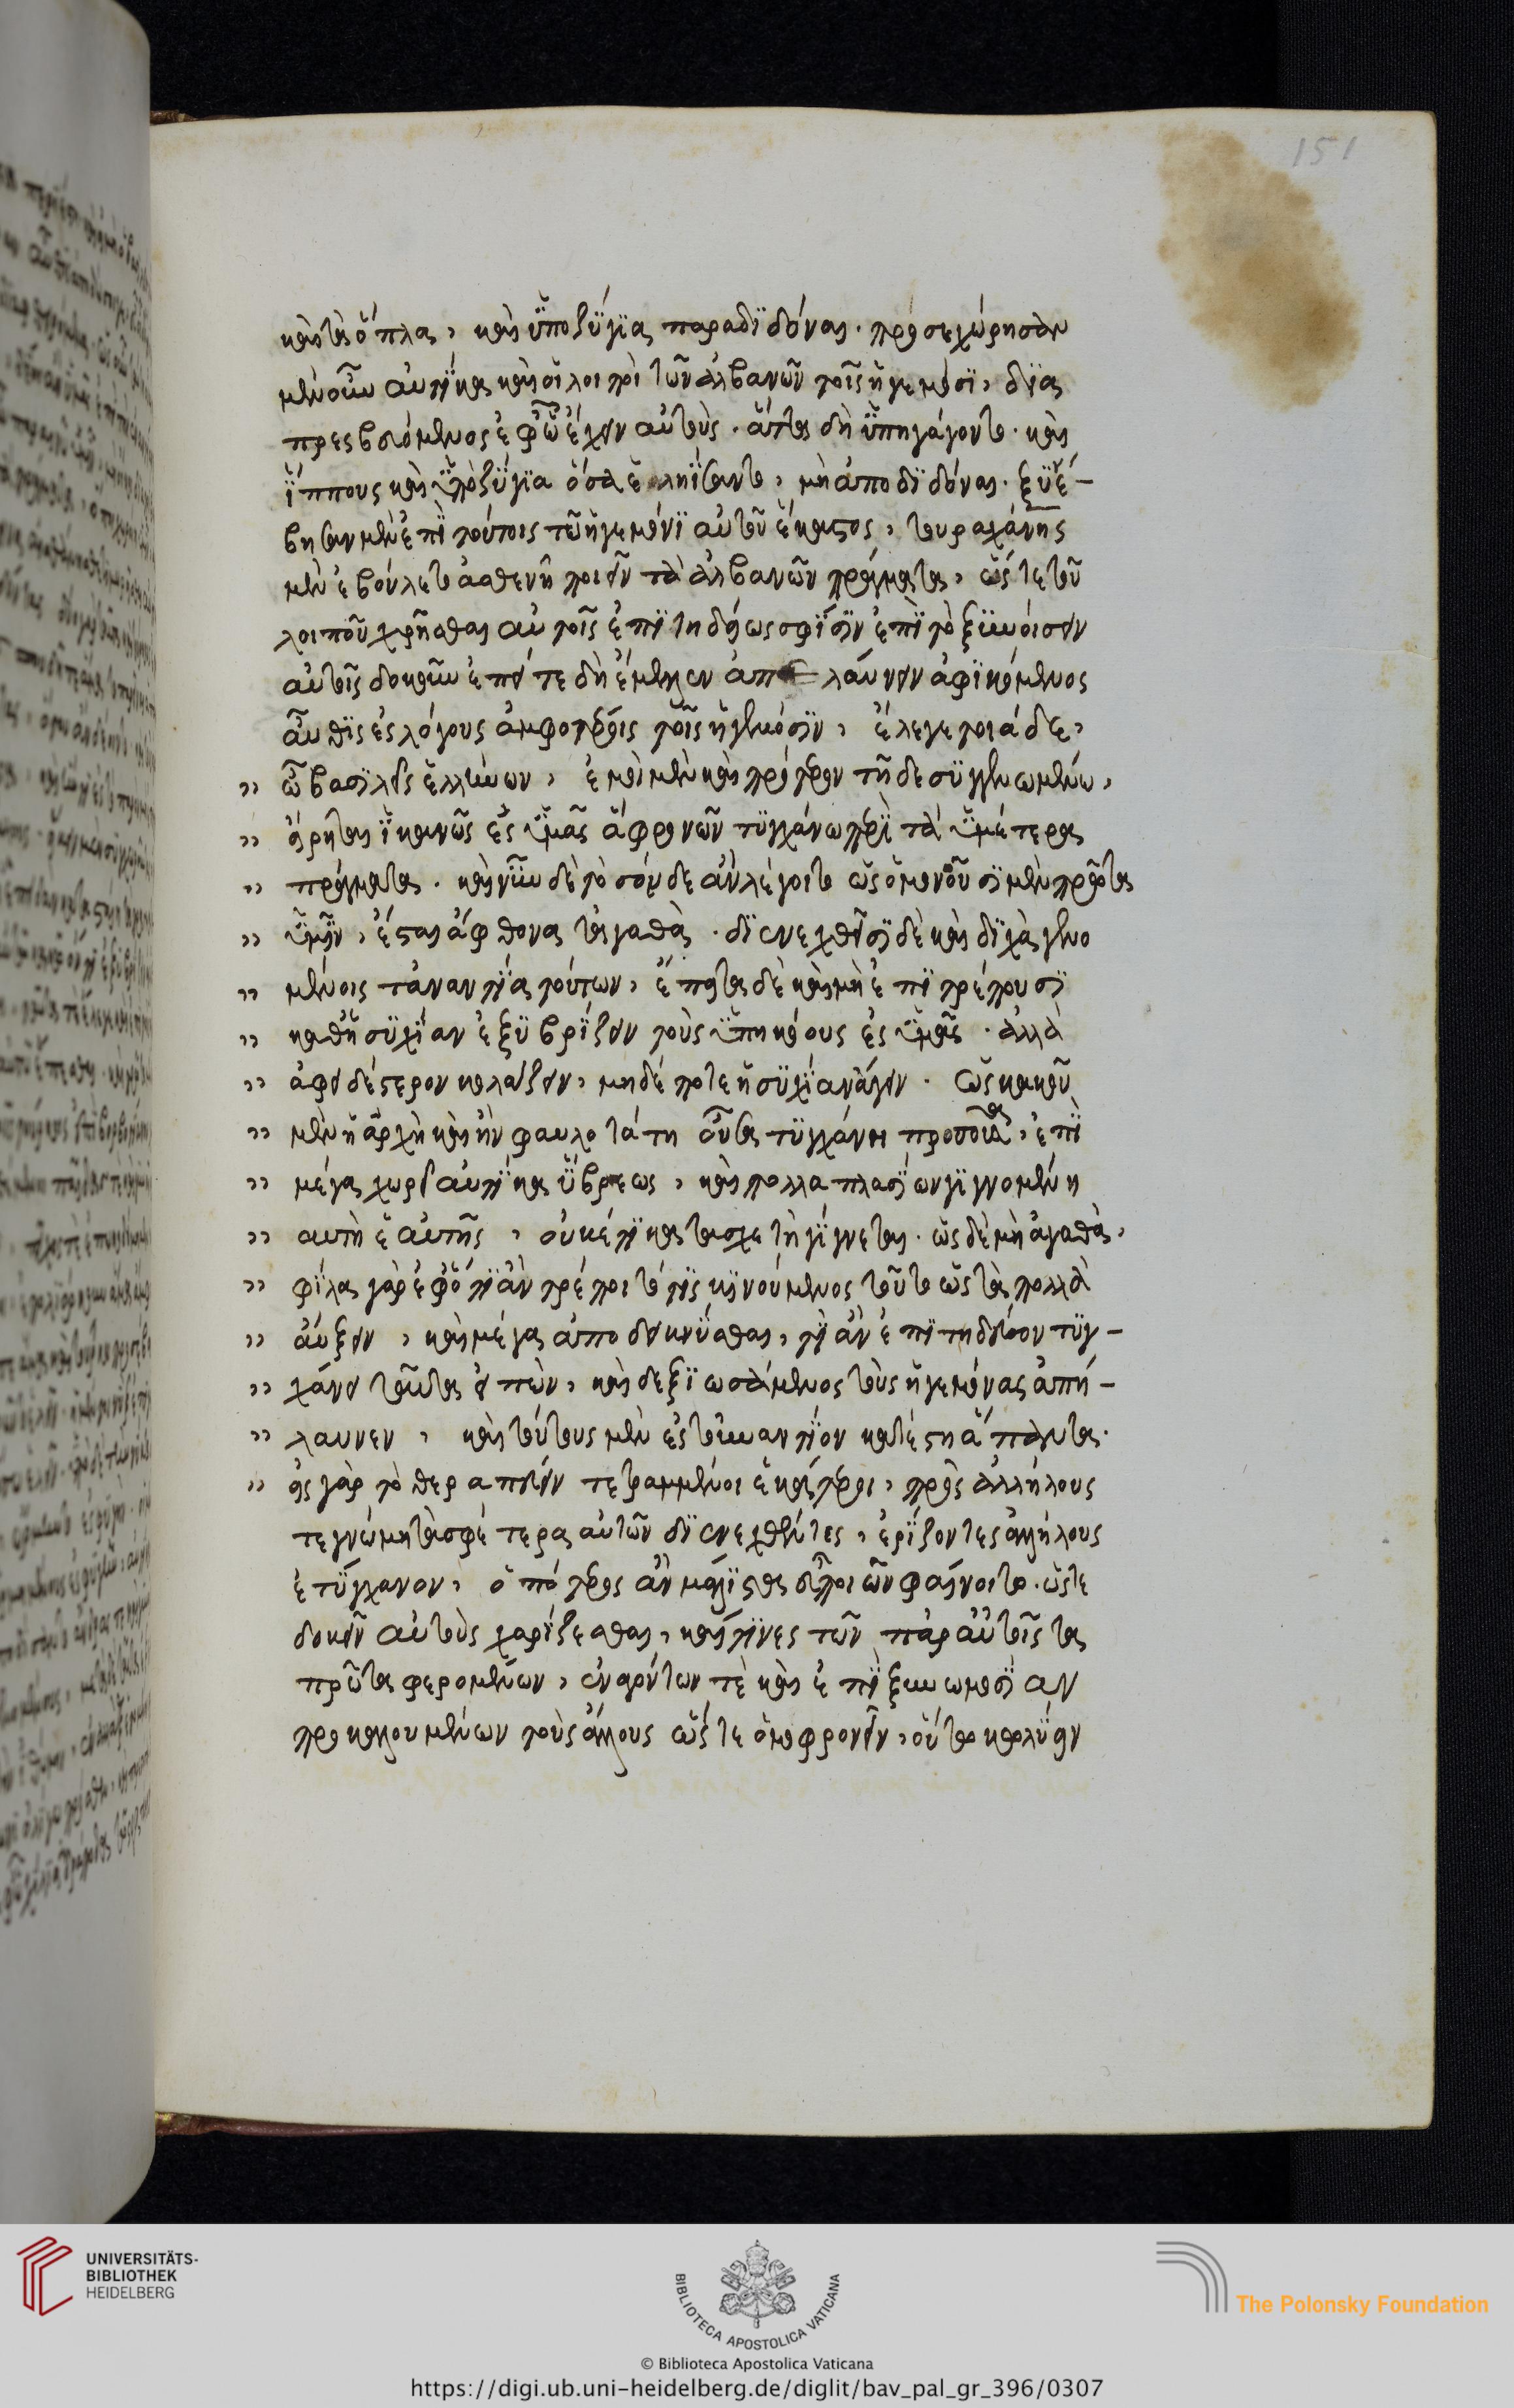 151
καὶ τὰ ὅπλα, καὶ ὑποζύγια παραδιδόναι. προσεχώρησαν
μὲν οὖν αὐτίκα καὶ οἱ λοιποὶ τῶν ἀλβανῶν τοῖς ἡγεμόσι, δια
πρεσβευόμενος ἐφ' ᾧ ἕξειν αὐτοὺς. ἅττα δὴ ὑπηγάγοντο. καὶ
ἵππους καὶ ὑποζύγια ὅσα ἐληίσαντο, μὴ ἀποδιδόναι. ξυνέ-
βησαν μὲν ἐπὶ τούτοις τῶ ἡγεμόνι αὐτοῦ ἕκαστος, τουραχάνης
μὲν ἐβούλετο ἀσθενῆ ποιεῖν τὰ ἀλβανῶν πράγματα, ὥστε τοῦ
λοιποῦ χρῆσθαι αὐτοῖς ἐπιτηδείως σφίσιν ἐπὶ τὸ ξυνοίσειν
αὐτοῖς δοκοῦν ἐπεί τε δὴ ἔμελλεν ἀπελαύνειν ἀφικόμενος
αὖθις ἐς λόγους ἀμφοτέροις τοῖς ἡγεμόσιν, ἔλεγε τοιάδε,
ὦ βασιλεῖς ἑλλήνων, ἐμοὶ μὲν καὶ πρότερον τῆδε συγγενωμένω,
εἴρηται ἱκανῶς ἐς ὑμᾶς ἃ φρονῶν τυγχάνω περὶ τὰ ὑμέτερα
πράγματα. καὶ νῦν δὲ τὸ σόνδε ἂν λέγοιτο ὡς ὁμονοοῦσι μὲν πρὸς τα
ὑμῖν, ἔσται ἄφθονα τἀγαθὰ. διενεχθεῖσι δὲ καὶ δίχα γενο
μένοις τἀναντία τούτων, ἔπειτα δὲ καὶ μὴ ἐπιτρέπουσι
καθ' ἡσυχίαν ἐξυβρίζειν τοὺς ὑπηκόους ἐς ὑμᾶς. ἀλλὰ
ἀφειδέστερον κολάζειν, μηδέ ποτε ἡσυχίαν ἄγειν. ὡς κακοῦ
μὲν ἡ ἀρχὴ καὶ ἢν φαυλοτάτη οὖσα τυγχάνη, ἐπὶ
μέγα χωρεῖ αὐτίκα ὕβρεως, καὶ πολλαπλασίων γιγνομένη
αυτὴ ἑαυτῆς, οὐκέτι κατασχετὴ γίγνεται. ὡς δὲ μὴ ἀγαθὰ,
φίλα γὰρ ἐφ' ὅ τι ἂν τρέποιτό τις κινούμενος τοῦτο ὡς τὰ πολλὰ
αὔξειν, καὶ μέγα ἀποδείκνυσθαι, τι ἂν ἐπιτηδεῖον τυγ-
χάνει ταῦτα εἰπὼν, καὶ δεξιωσάμενος τοὺς ἡγεμόνας ἀπή-
λαυνεν, καὶ τούτους μὲν ἐς τοὐναντίον κατέστη ἅπαντα.
ἐς γὰρ τὸ θεραπεύειν τετραμμένοι ἑκάτεροι, πρὸς ἀλλήλους
τε γνώμη τὰ σφέτερα αὐτῶν διενεχθέντες, ἐρίζοντες ἀλλήλους
ἐτύγχανον, ὁπότερος ἂν μάλιστα εὖ ποιῶν φαίνοιτο. ὥστε
δοκεῖν αὐτοὺς χαρίζεσθαι, καί τινες τῶν παρ' αὐτοῖς τα
πρῶτα φερομένων, ἐναρόντων τὲ καὶ ἐπὶ ξυνωμοσίαν
προκαλουμένων τοὺς ἄλλους ὥστε ὁμοφρονεῖν, οὕτω καλύειν
UNIVERSITÄTS-
BIBLIOTHEK
HEIDELBERG
BIBLIOTECA APOSTOLICA VATICANA
The Polonsky Foundation
© Biblioteca Apostolica Vaticana
https://digi.ub.uni-heidelberg.de/diglit/bav_pal_gr_396/0307